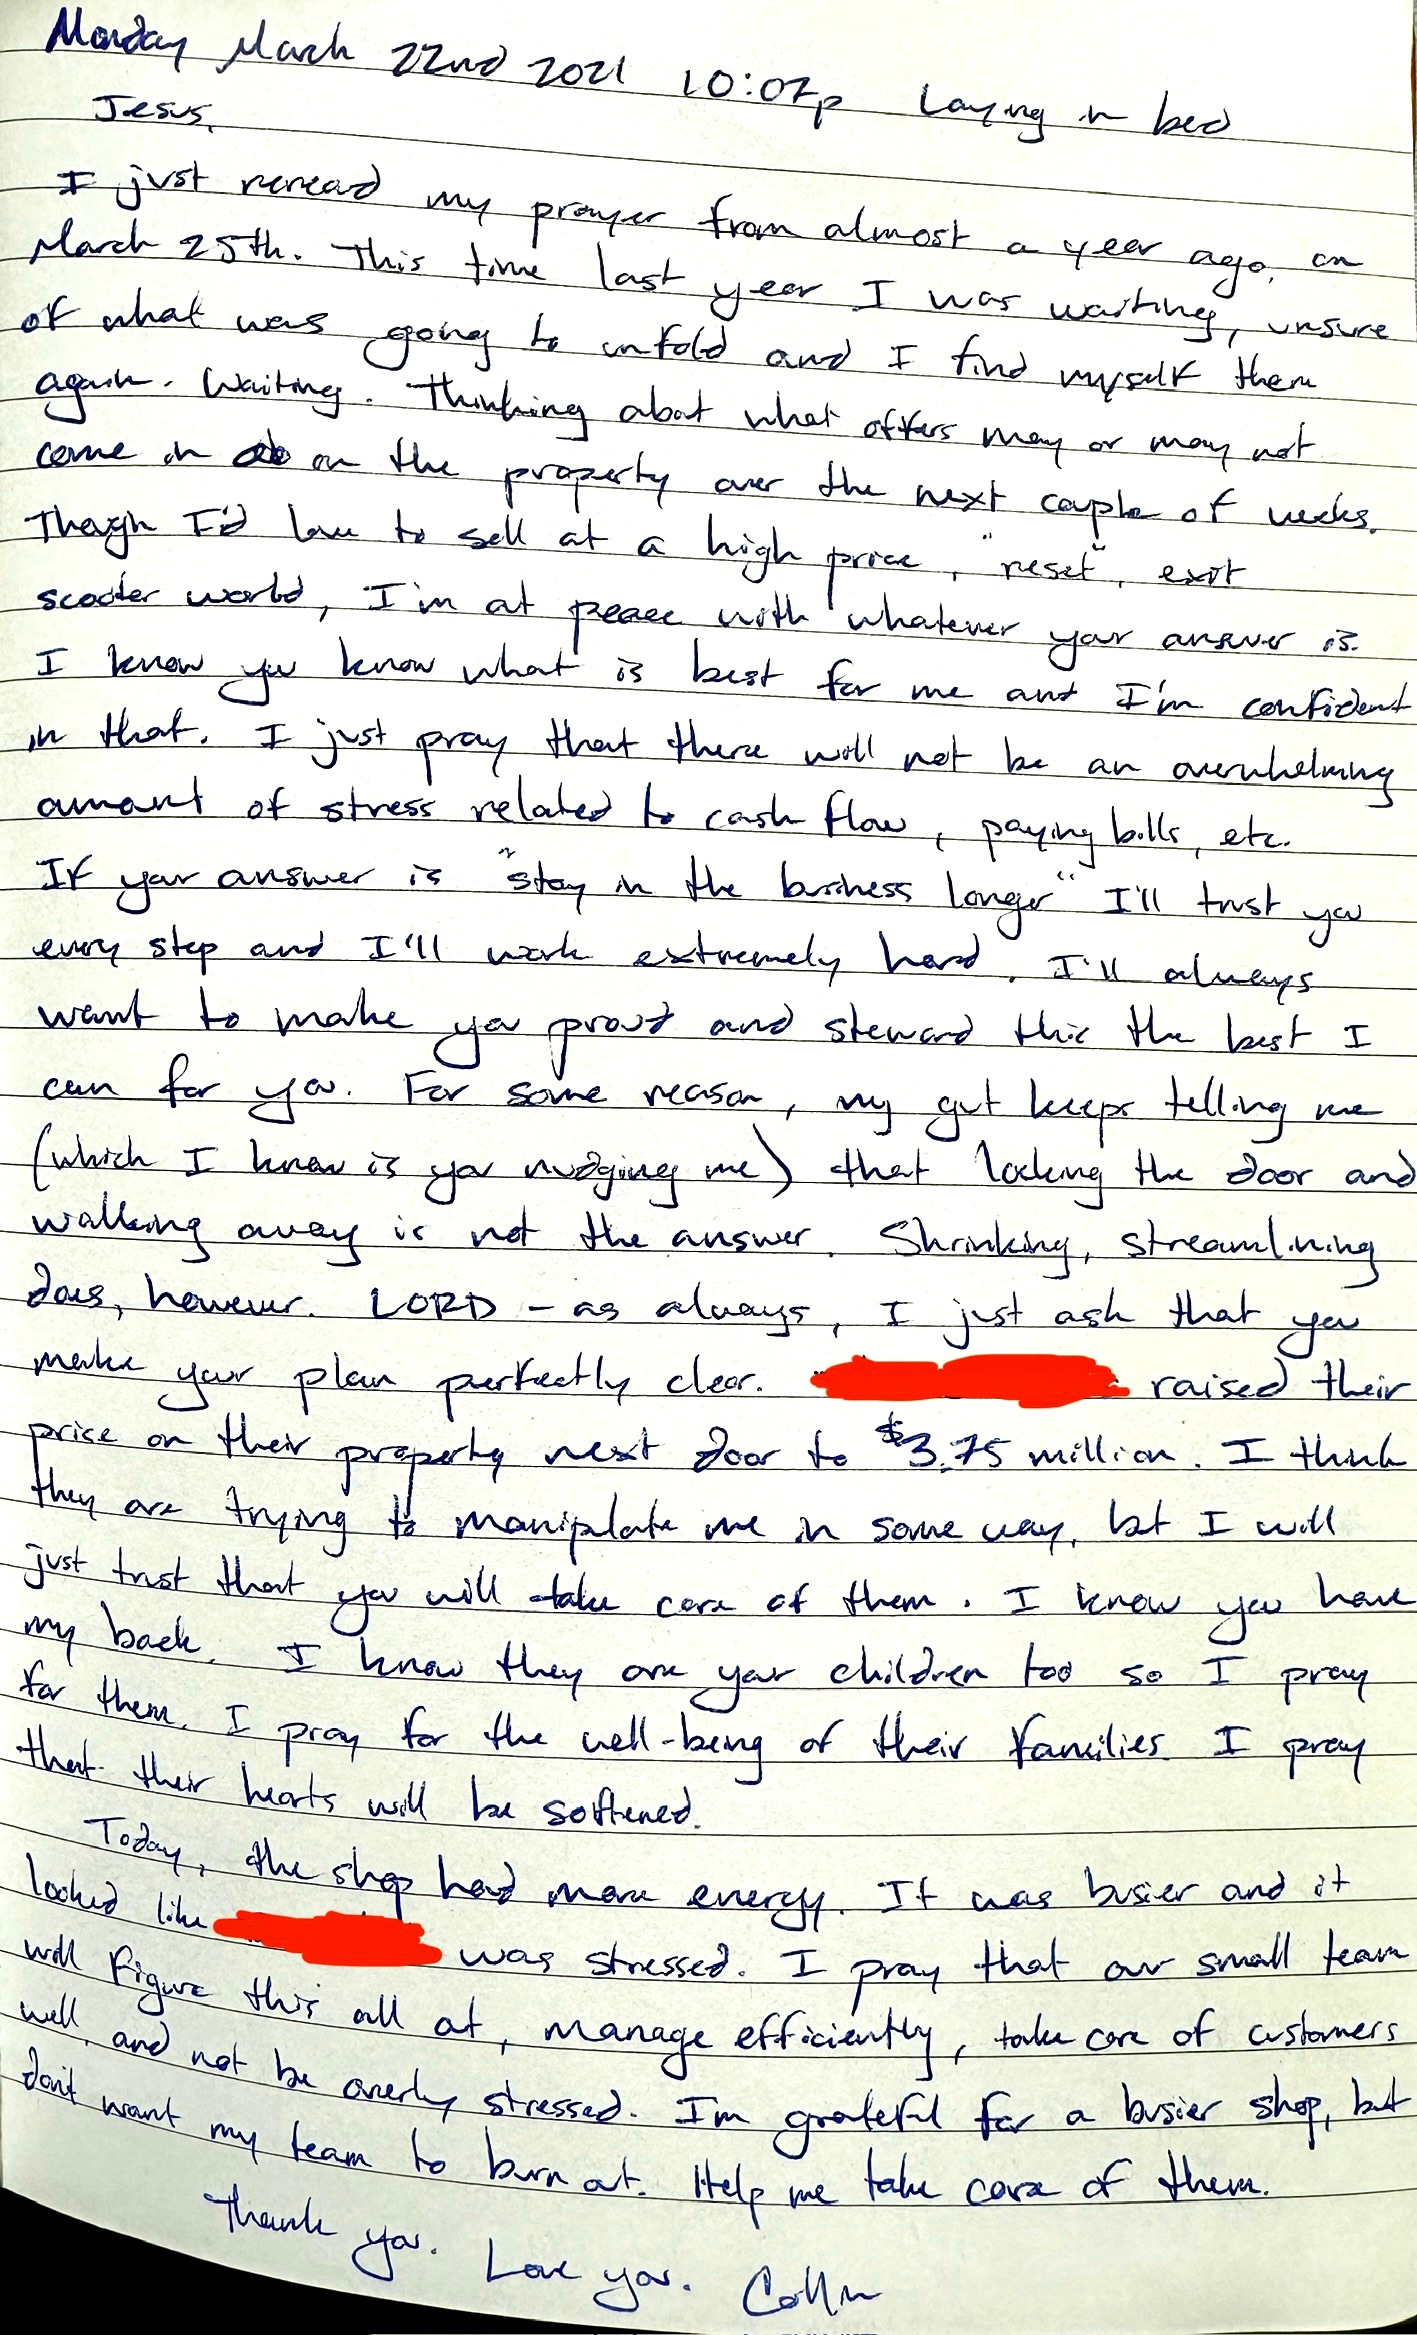 Monday March 22nd 2021 10:07p Laying in bed
Jesus,
I just reread my prayer from almost a year ago, on
March 25th. This time last year I was waiting, unsure
of what was going to unfold and I find myself there
again. Waiting. Thinking about what offers may or may not
come in on the property over the next couple of weeks.
Though I'd love to sell at a high price, "reset", exit
scooter world, I'm at peace with whatever your answer is.
I know you know what is best for me and I'm confident
in that. I just pray that there will not be an overwhelming
amount of stress related to cash flow, paying bills, etc.
If your answer is "stay in the business longer" I'll trust you
every step and I'll work extremely hard. I'll always
want to make you proud and steward this the best I
can for you. For some reason, my gut keeps telling me
(which I know is you nudging me) that locking the door and
walking away is not the answer. Shrinking, streamlining
does, however. LORD - as always, I just ask that you
make your plan perfectly clear. raised their
price on their property next door to $3.75 million. I think
they are trying to manipulate me in some way, but I will
just trust that you will take care of them. I know you have
my back. I know they are your children too so I pray
for them. I pray for the well-being of their families. I pray
that their hearts will be softened.
Today, the shop had more energy. It was busier and it
looked like was stressed. I pray that our small team
will figure this all out, manage efficiently, take care of customers
well, and not be overly stressed. I'm grateful for a busier shop, but
don't want my team to burn out. Help me take care of them.
Thank you. Love you. Collin